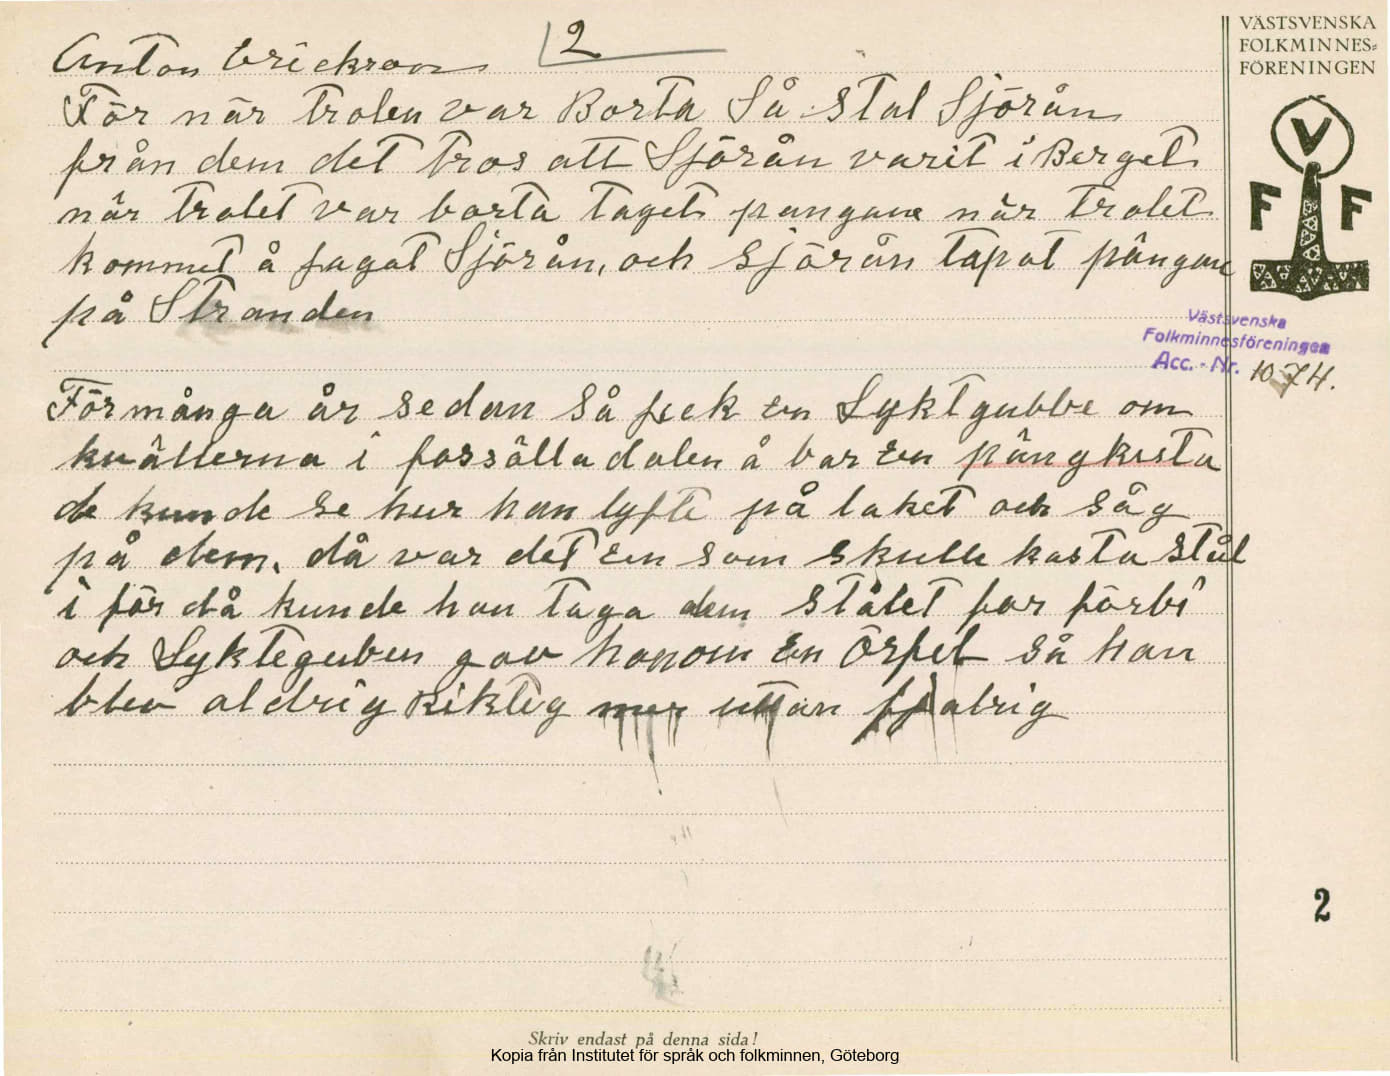 VÄSTSVENSKA
FOLKMINNES=
FÖRENINGEN
V
F F
2
Anton Erickson
För när trolen var Borta Så stal Sjörån
från dem det tros att Sjörån varit i Berget
när trolet var borta taget pengane när trolet
kommet å jagat Sjörån, och sjörån tapat pängane
på Stranden
Västsvenska
Folkminnesföreningen
Acc. - Nr. 1074.
För många år sedan så feck en Lyktgubbe om
kvällerna i forssälladalen å bar en pängkista
de kunde se hur han lyfte på laket och såg
på dem. då var det en som skulle kasta stål
i för då kunde han taga dem stålet for förbi
och Lykteguben gav honom en Örfel så han
blev aldrig Riktig mer uttan fjålrig
2
Skriv endast på denna sida!
Kopia från Institutet för språk och folkminnen, Göteborg